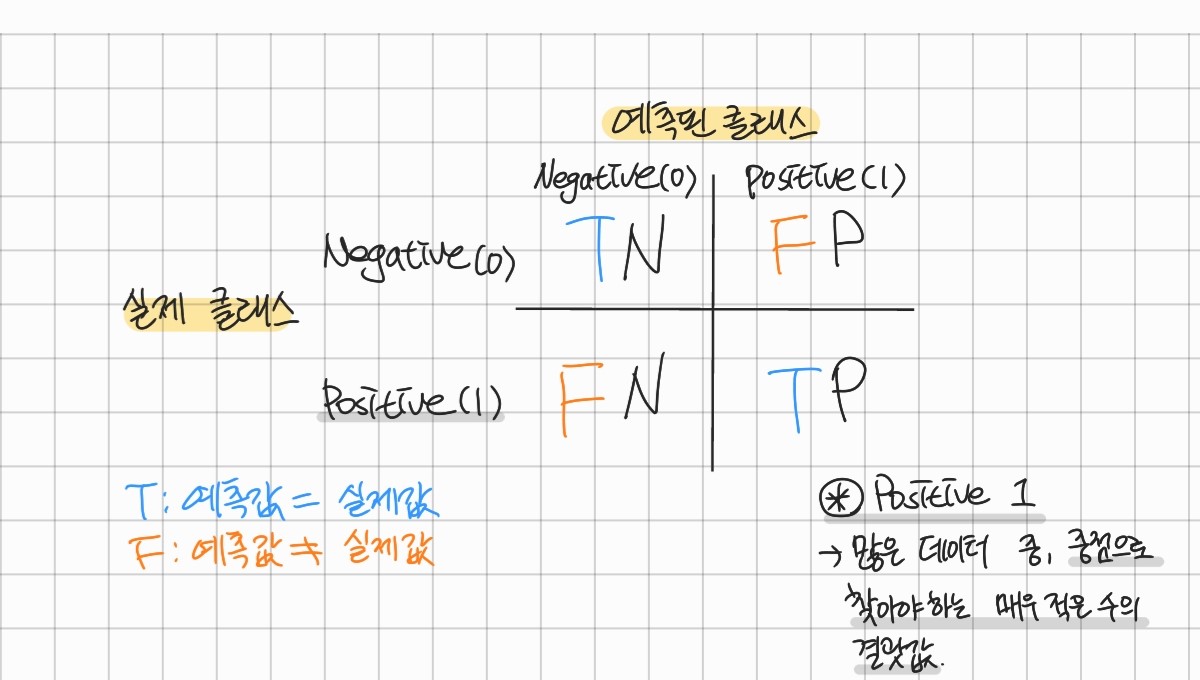 예측된 클래스
Negative(0) Positive(1)
Negative(0) TN FP
실제 클래스
Positive(1) FN TP
T: 예측값 = 실제값
F: 예측값 ≠ 실제값
⊛ Positive 1
→ 많은 데이터 중, 중점으로
찾아야하는 매우 적은 수의
결괏값.